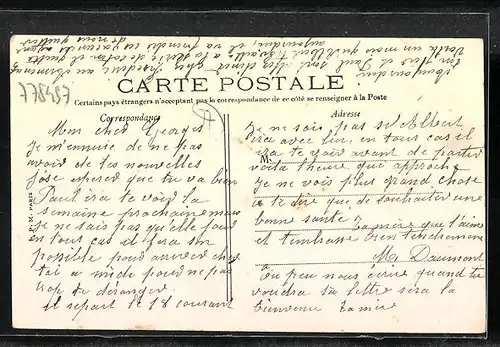 CARTE POSTALE
Certains pays étrangers n'acceptant pas la correspondance de ce côté se renseigner à la Poste
Correspondance
Mon cher Georges
je m'ennuie de ne pas
avoir de tes nouvelles
j'ose esperer que tu va bien
Paul ira te voir la
semaine prochaine mais
je ne sais pas qu'elle jour
en tous cas il fera son
possible pour arriver chez
toi a midi pour ne pas
trop te déranger
il repart le 18 courant
Adresse
je ne sais pas si Albert
ira avec lui, en tous cas il
ira te voir avant de partir
voila l'heure qui approche
M
je ne vois plus grand chose
a te dire que de souhaiter une
bonne santé
ta mère que t'aime
et t'embrasse bien tendrement
Mme Daumont
tu peu nous écrire quand tu
voudra ta lettre sera la
bienvenue ta mère
778457